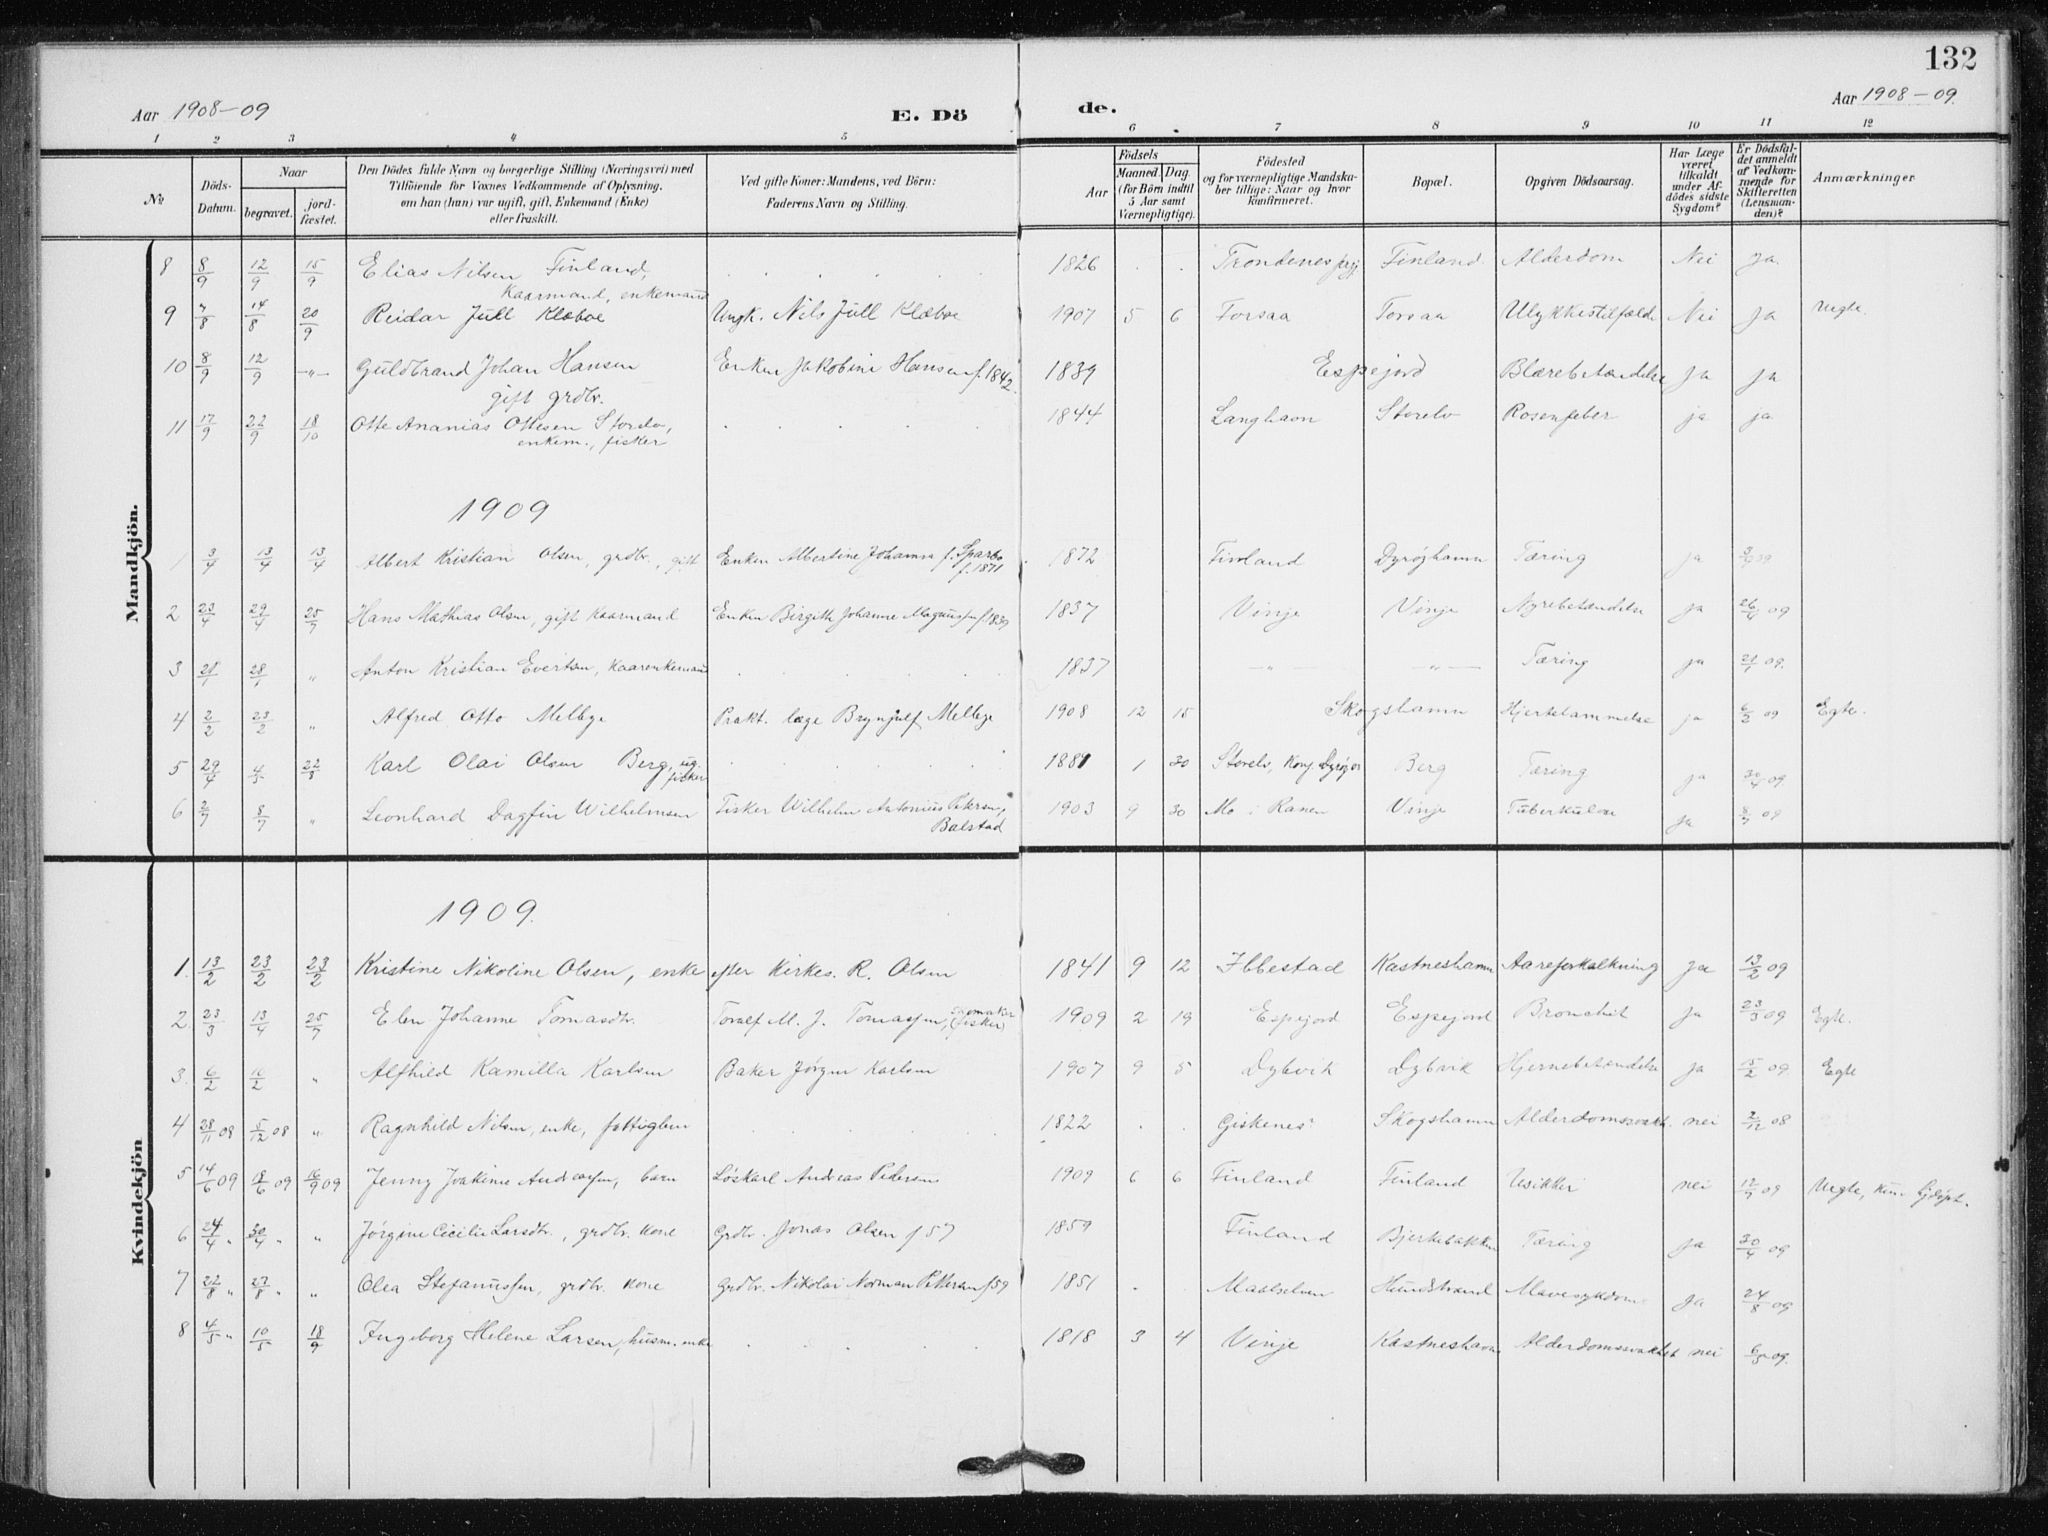 132
Aar 1908-09 E. Dö de. Aar 1908-09.
1 2 3 4 5 6 7 8 9 10 11 12
No
Döds-Datum.
Naar
begravet.
jord-fæstet.
Den Dödes fulde Navn og borgerlige Stilling (Næringsvei) med
Tilföiende for Voxnes Vedkommende af Oplysning,
om han (hun) var ugift, gift, Enkemand (Enke)
eller fraskilt.
Ved gifte Koner: Mandens, ved Börn:
Faderens Navn og Stilling.
Aar
Födsels
Maaned. Dag
(for Börn indtil
5 Aar samt
Værnepligtige).
Födested
og for værnepligtige Mandska-
ber tillige: Naar og hvor
konfirmeret.
Bopæl.
Opgiven Dödsaarsag.
Har Læge
været
tilkaldt
under Af-
dödes sidste
Sygdom?
Er Dödsfal-
det anmeldt
af Vedkom-
mende for
Skifteretten
(Lensman-
den)?
Anmærkninger
Mandkjön.
8 8/9 12/9 15/9 Elias Nilsen Finland, . . . . 1826 . . Trondenes Finland. Alderdom Nei Ja.
Kaarmand, enkemand
9 7/8 14/8 20/9 Reidar Jull Klæboe Ungk. Nils Jull Klæboe 1907 5 6 Forsaa Forsaa Ulykkestilfælde Nei Ja Uegte.
10 8/9 12/9 -"- Guldbrand Johan Hansen Enken Jakobine Hansen f. 1842. 1839 Espejord Blærebetændelse Ja Ja
gift grdbr.
11 17/9 22/9 18/10 Otto Ananias Ottesen Storelv, . . . . 1844 Langhavn Storelv Rosenfeber ja ja
enkem., fisker
1909
1 3/4 13/4 13/4 Albert Kristian Olsen, grdbr., gift Enken Albertine Johanna f. Sparbo 1872 Finland Dyrøyhamn Tæring ja 09
f. 1871
2 23/4 29/4 25/7 Hans Mathias Olsen, gift Kaarmand Enken Birgith Johanne Magnussen f. 1839 1837 Vinje Vinje Nyrebetændelse ja 26/4 09
3 21/1 28/1 " Anton Kristian Evertsen, Kaarenkemand . . . . 1837 -"- -"- Tæring ja 21/1 09.
4 2/2 23/2 " Alfred Otto Melbye Prakt. læge Brynjulf Melbye 1908 12 15 Skogshamn Hjertelammelse ja 6/2 09 Egte.
5 29/4 4/5 22/8 Karl Olai Olsen Berg, ug. . . . . 1881 1 30 Storelv, Konf. Dyrøy Berg Tæring ja 30/4 09.
fisker
6 2/7 8/7 " Leonhard Dagfin Wilhelmsen Fisker Wilhelm Antonius Petersen, 1903 9 30 Mo i Ranen Vinje Tuberkulose Ja 8/7 09
Balstad
Kvindekjön
1909.
1. 13/2 23/2 23/2 Kristine Nikoline Olsen, enke efter Kirkes. R. Olsen 1841 9 12 Ibbestad Kastneshamn Aareforkalkning Ja 13/2 09
2. 23/3 13/4 25/7 Elen Johanne Tomasdtr. Toralf M. J. Tomassen, (fisker) 1909 2 19 Espejord Espejord Bronchit Ja 23/3 09 Egte.
3. 6/2 16/2 " Alfhild Kamilla Karlsen Baker Jørgen Karlsen 1907 9 5 Dybvik Dybvik Hjernebetændelse Ja 15/2 09. Egte
4 28/11 08 5/12 08 " Ragnhild Nilsen, enke, fattiglem . . . . 1822 . . Giskenes Skogshamn Alderdomssvakh. nei 2/12 08
5 14/6 09 18/6 09 16/9 09 Jenny Joakime Andreassen, barn Løskarl Andreas Pedersen 1909 6 6 Finland Finland Usikker nei 12/7 09 Uegte, kun hjdøpt.
6 24/4 " 30/4 " " Jørgine Cecilie Larsdtr., grdbr. kone Grdbr. Jonas Olsen f 57 1859 Finland Bjerkebakken Tæring Ja 30/4 09
7 22/8 " 27/8 " " Olea Stefanussen, grdbr. kone Grdbr. Nikolai Norman Pettersen f 59 1851 . Maalselven Hundstrand Mavesykdom Ja 24/8 09
8 4/5 " 10/5 18/9 Ingeborg Helene Larsen, husm. enke . . . . 1818 3 4 Vinje Kastneshavn Alderdomssvakhet nei 6/5 09.